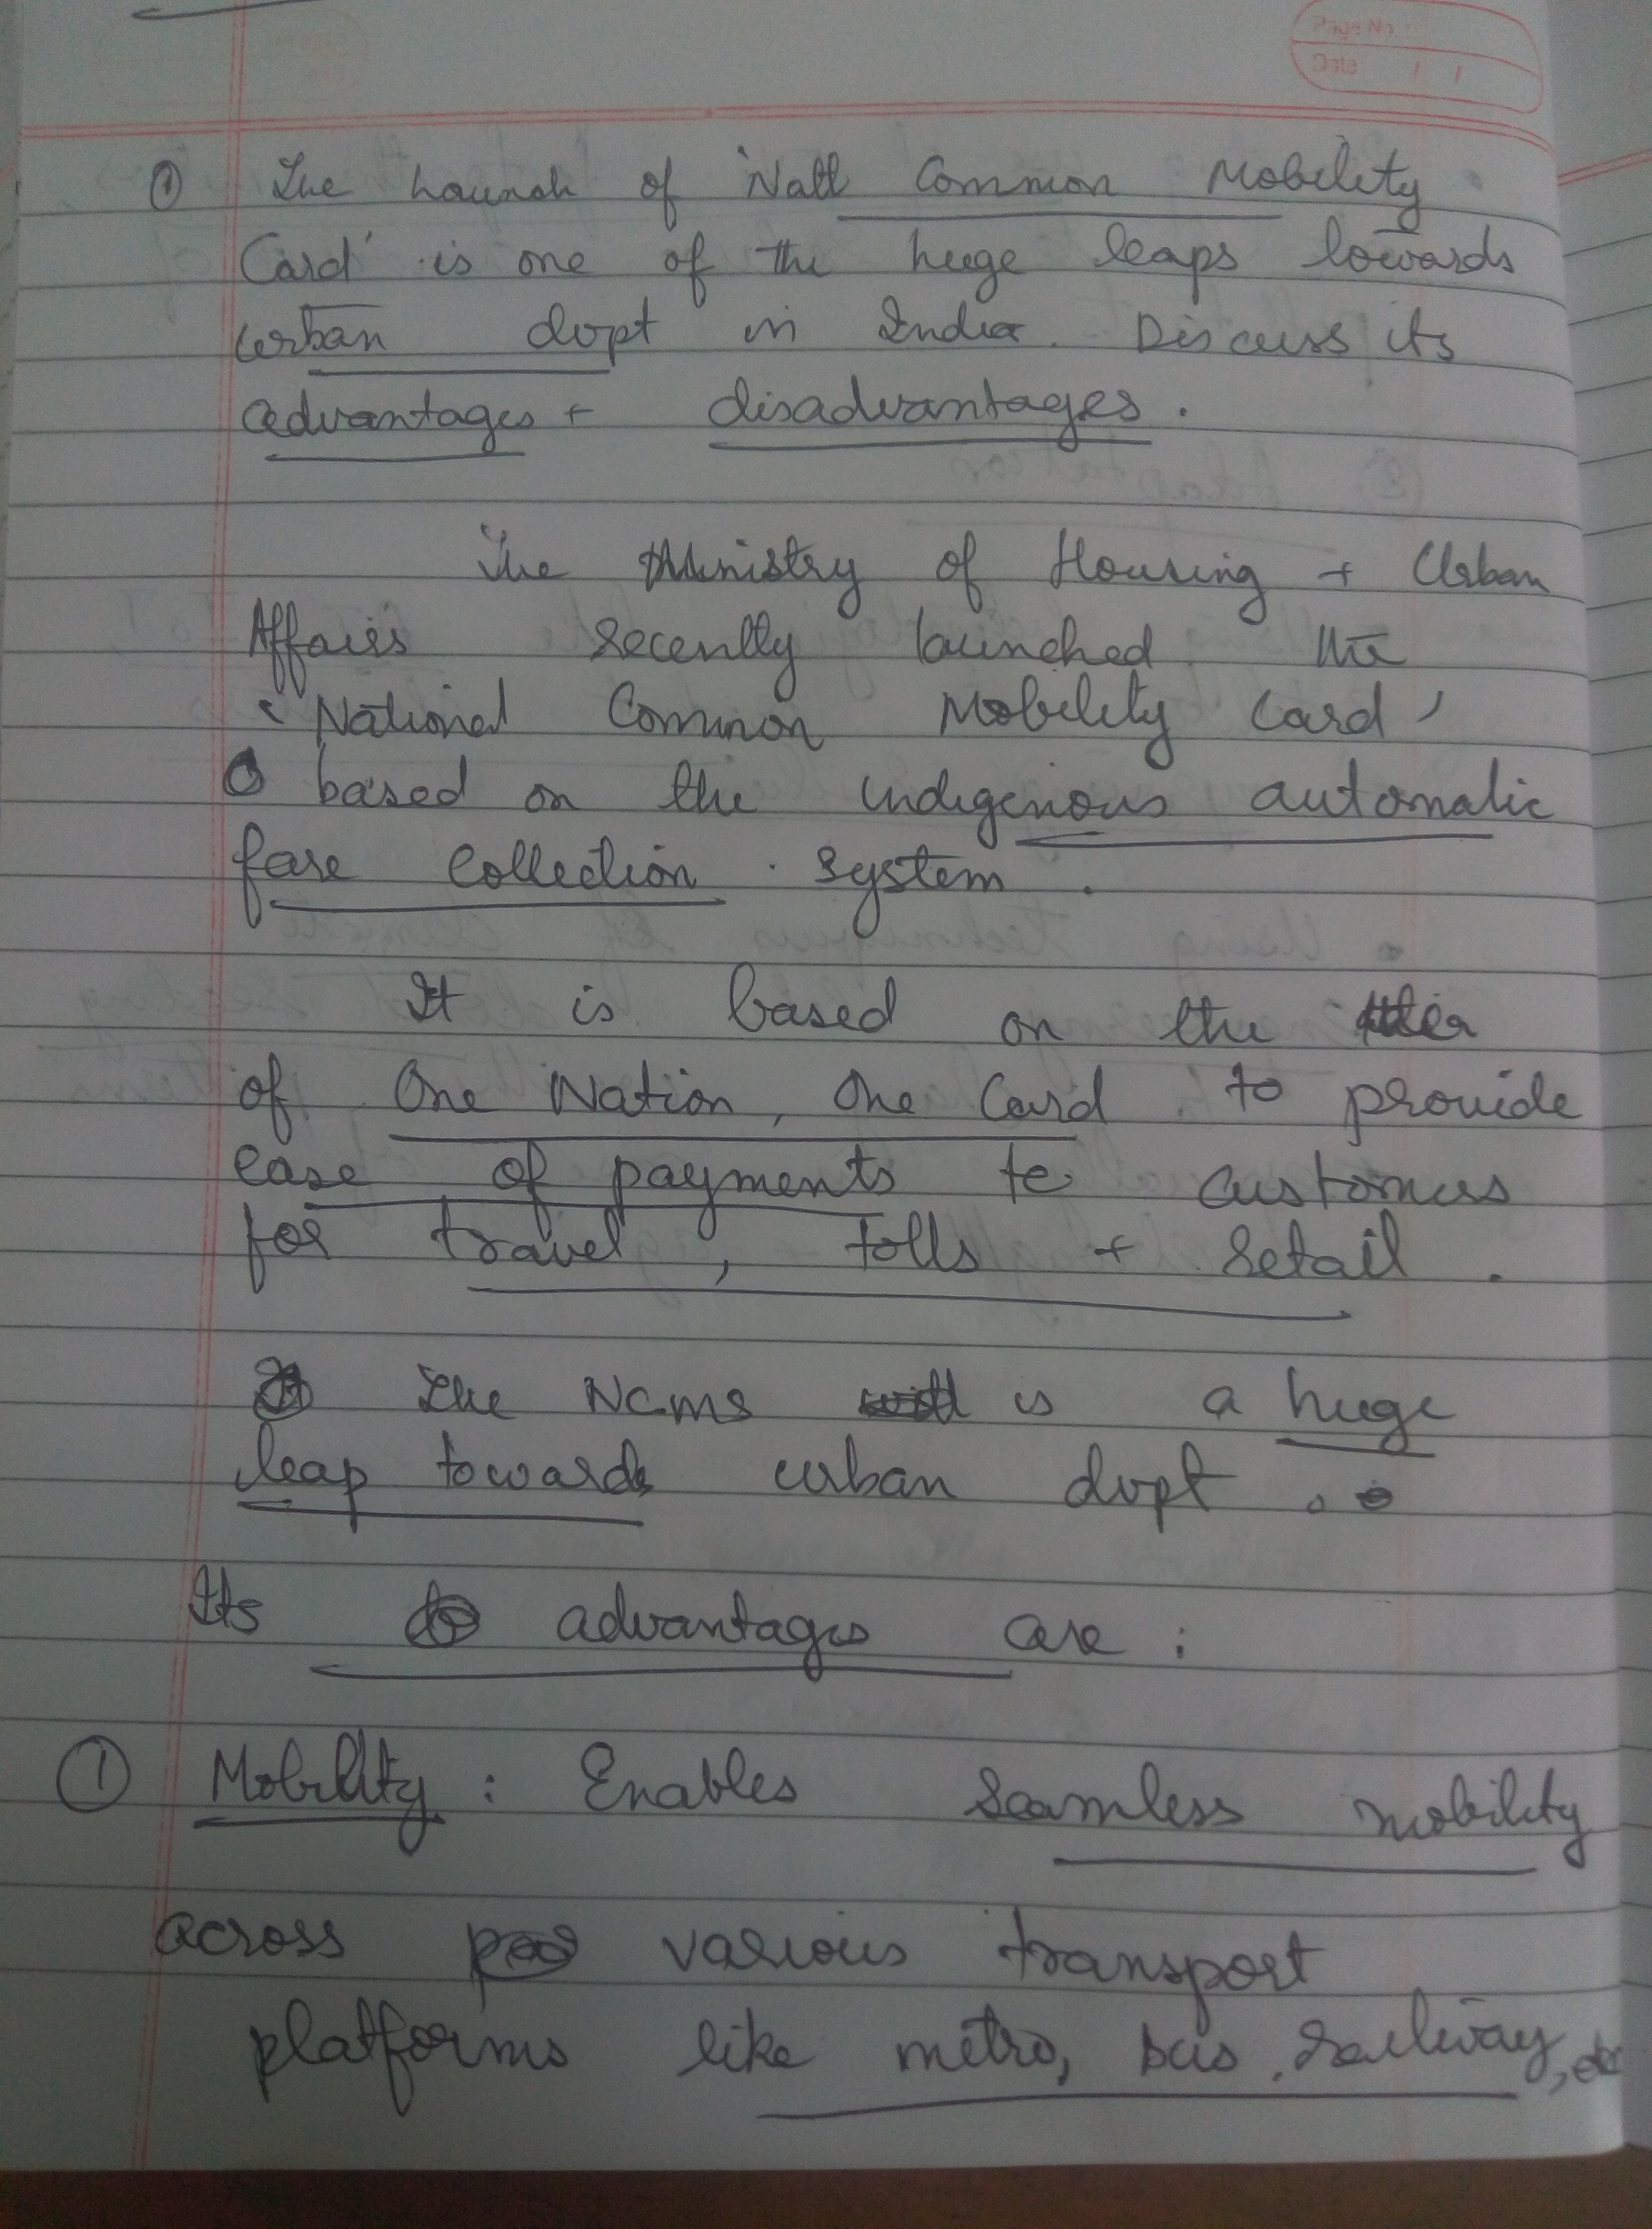 Page No.:
Date / /
① The Launch of 'Natl Common Mobility
Card' is one of the huge leaps towards
urban dvpt in India. Discuss its
advantages + disadvantages.
The Ministry of Housing + Urban
Affairs recently launched the
'National Common Mobility Card'
based on the indigenous automatic
fare collection system.
It is based on the
of One Nation, One Card to provide
ease of payments to customers
for travel, tolls + retail.
The NCMS is a huge
leap towards urban dvpt.
Its advantages are:
① Mobility: Enables seamless mobility
across various transport
platforms like metro, bus, railway, etc